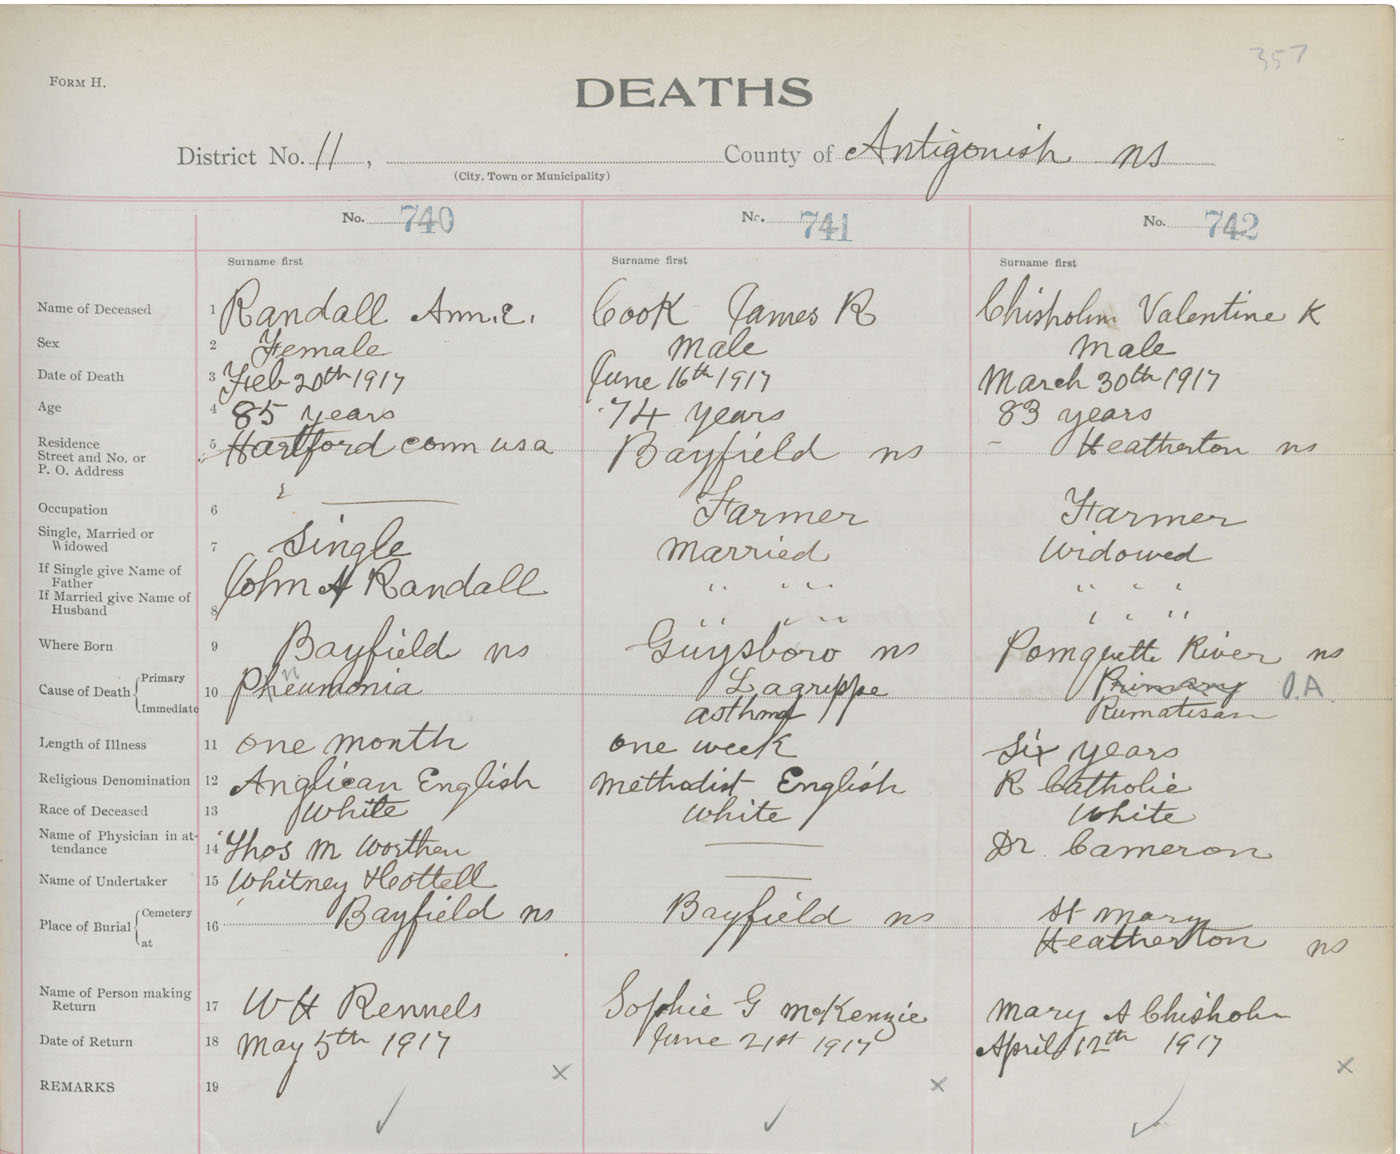 357
FORM H.
DEATHS
District No. 11 , County of Antigonish ns
(City, Town or Municipality)
No. 740 No. 741 No. 742
Surname first Surname first Surname first
Name of Deceased 1 Randall Ann.E. Cook James R Chisholm Valentine K
Sex 2 Female Male Male
Date of Death 3 Feb 20th 1917 June 16th 1917 March 30th 1917
Age 4 85 years 74 years 83 years
Residence 5 Hartford conn usa Bayfield ns Heatherton ns
Street and No. or
P. O. Address
Occupation 6 Farmer Farmer
Single, Married or
Widowed 7 Single Married Widowed
If Single give Name of
Father John A Randall " " " " " "
If Married give Name of
Husband 8 " " " " " "
Where Born 9 Bayfield ns Guysboro ns Pomquette River ns
Cause of Death Primary 10 Pneumonia Lagrippe Primary O.A
Immediate asthma Rumatisam
Length of Illness 11 one month one week Six years
Religious Denomination 12 Anglican English Methodist English R Catholic
Race of Deceased 13 White White White
Name of Physician in at-
tendance 14 Thos M Worthen Dr Cameron
Name of Undertaker 15 Whitney & Cottell
Place of Burial Cemetery 16 Bayfield ns Bayfield ns St Mary
at Heatherton ns
Name of Person making
Return 17 W H Rennels Sophie G McKenzie Mary A Chisholm
Date of Return 18 May 5th 1917 June 21st 1917 April 12th 1917
REMARKS 19 x x x